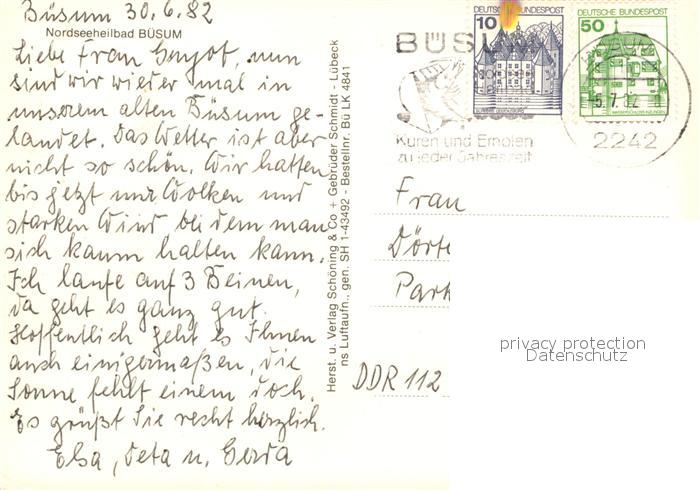 Büsum 30.6.82
Nordseeheilbad BÜSUM
Liebe Frau Guyot, nun
sind wir wieder mal in
unserem alten Büsum ge-
landet. Das Wetter ist aber
nicht so schön. Wir hatten
bis jetzt nur Wolken und
starken Wind bei dem man
sich kaum halten kann.
Ich laufe auf 3 Beinen,
da geht es ganz gut.
Hoffentlich geht es Ihnen
auch einigermaßen, die
Sonne fehlt einem doch.
Es grüßt Sie recht herzlich.
Elsa, Deta u. Gerda
Herst. u. Verlag Schöning & Co + Gebrüder Schmidt - Lübeck
ns Luftaufn., gen. SH 1-43492 - Bestellnr. Bü LK 4841
DEUTSCHE BUNDESPOST
10
DEUTSCHE BUNDESPOST
50
BÜSUM
Kuren und Erholen
zu jeder Jahreszeit
-5.7.82
2242
Frau
Dörte
Park
DDR 112
privacy protection
Datenschutz